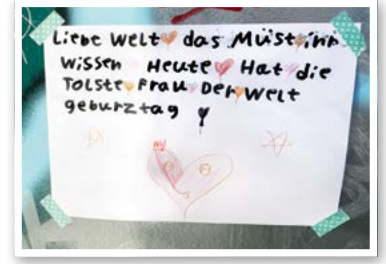 Liebe Welt das Müst ihr
wissen Heute Hat die
Tolste Frau Der Welt
geburztag